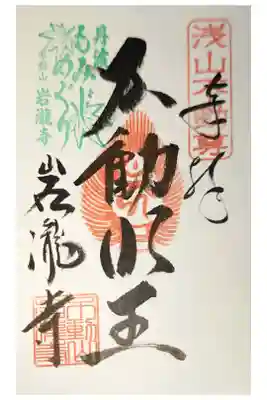 浅山不動尊
奉拝
不動明王
岩瀧寺
丹波
もみじ
めぐり
岩瀧寺